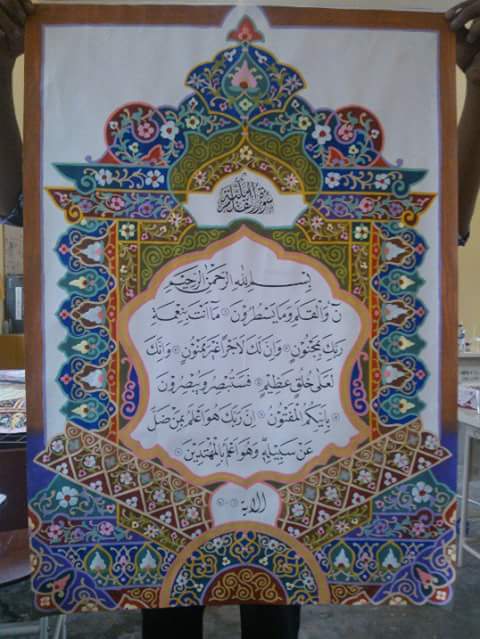 سورة القلم
بسم الله الرحمن الرحيم
ن والقلم وما يسطرون ما أنت بنعمة
ربك بمجنون وإن لك لأجرا غير ممنون وإنك
لعلى خلق عظيم فستبصر ويبصرون
بأييكم المفتون إن ربك هو أعلم بمن ضل
عن سبيله وهو أعلم بالمهتدين
الآية